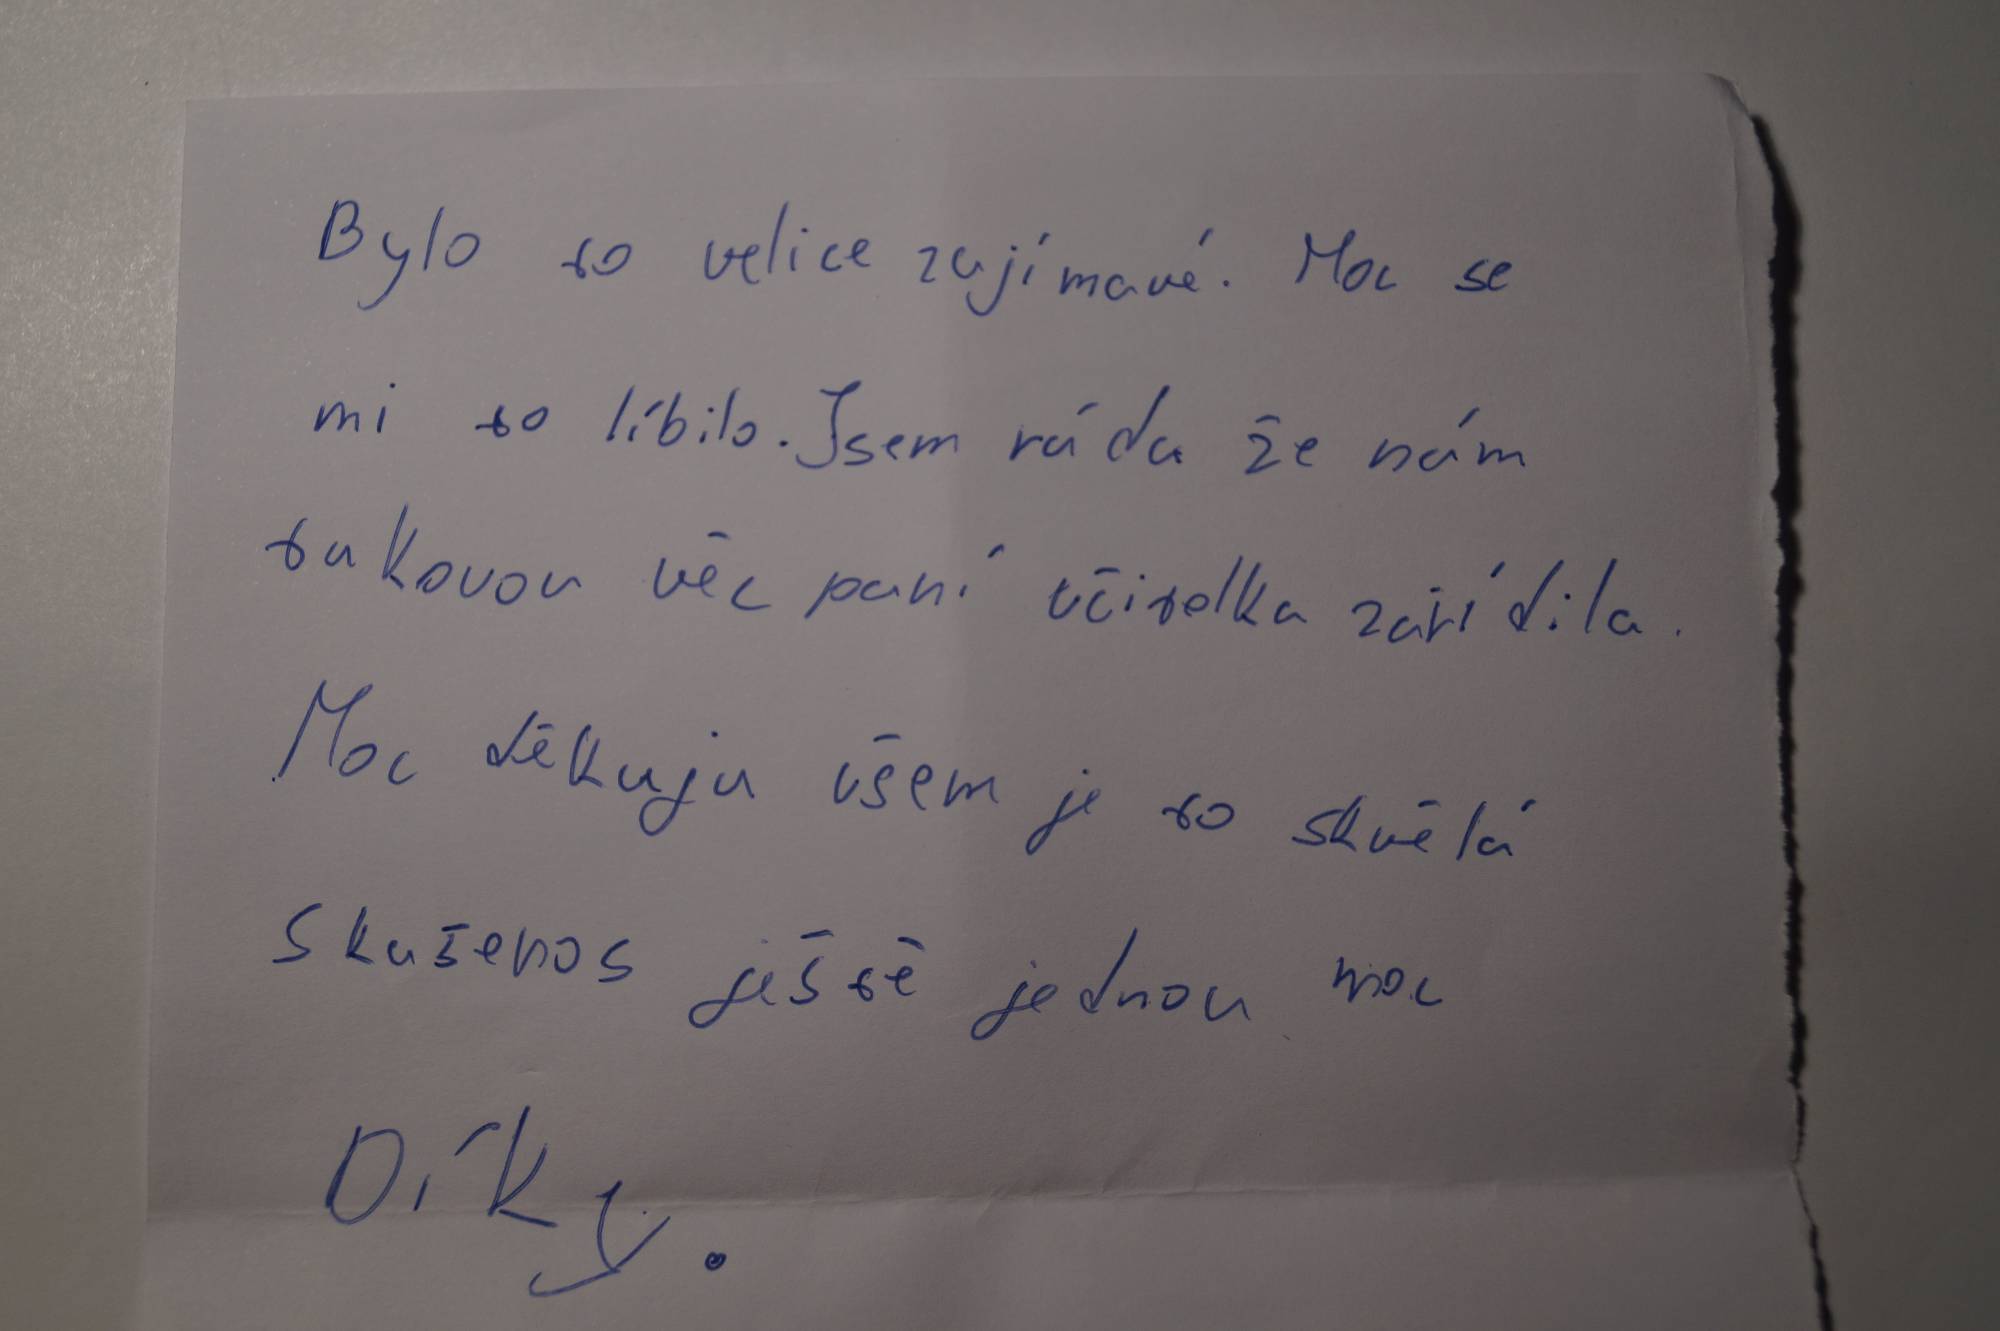 Bylo to velice zajímavé. Moc se
mi to líbilo. Jsem ráda že nám
takovou věc paní učitelka zařídila.
Moc děkuju všem je to skvělá
skušenos ještě jednou moc
Díky.